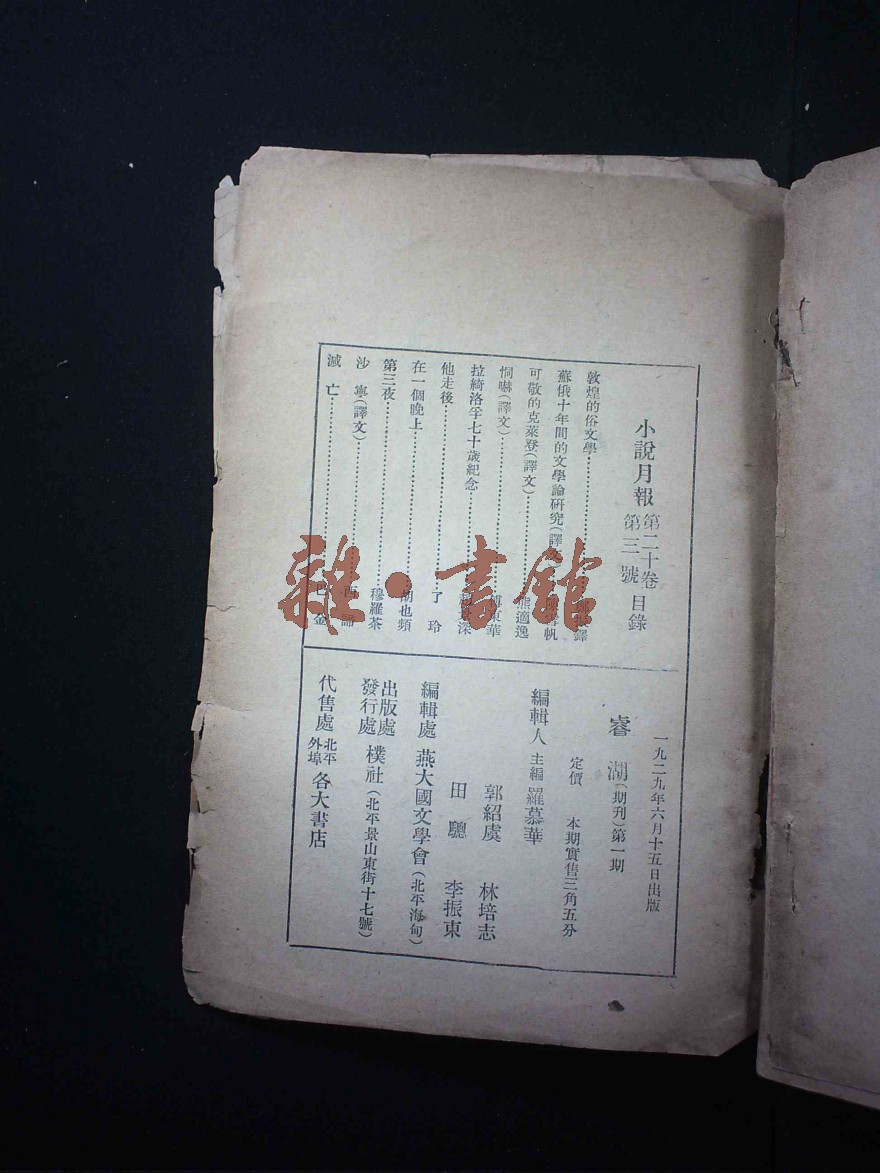 小說月報 第二十卷 第三號 目錄
敦煌的俗文學……鄭振鐸
蘇俄十年間的文學論研究(譯文)……帆
可敬的克萊登(譯文)……熊適逸
恫嚇(譯文)……傅東華
拉綺洛孚七十歲紀念……深
他走後……丁玲
在一個晚上……胡也頻
第三夜……穆羅茶
沙寧(譯文)……西諦
滅亡……巴金
一九二九年六月十五日出版
睿湖(期刊)第一期
定價 本期實售三角五分
編輯人 主編 羅慕華
郭紹虞 林培志
田驄 李振東
編輯處 燕大國文學會(北平海甸)
出版處 發行處 樸社(北平景山東街十七號)
代售處 北平 外埠 各大書店
雜·書館